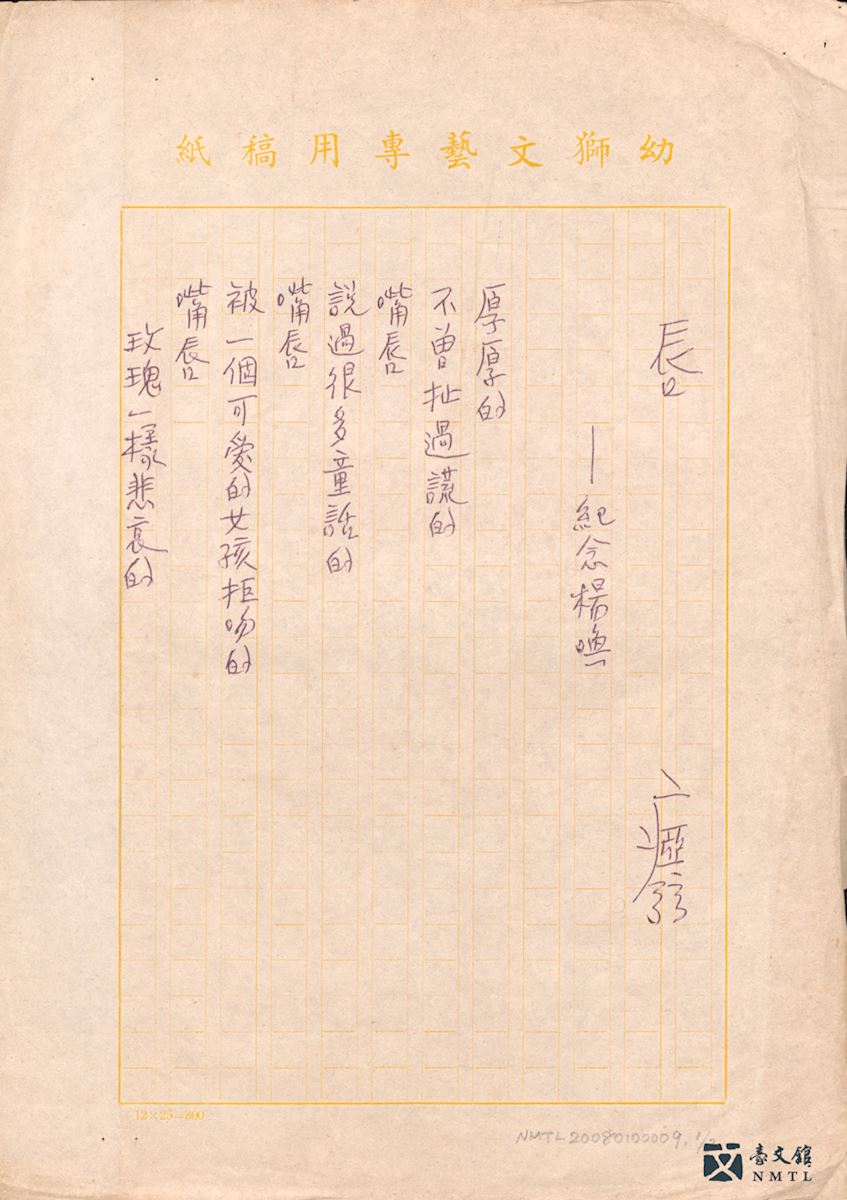 幼獅文藝專用稿紙
唇
瘂弦
—紀念楊喚
厚厚的
不曾扯過謊的
嘴唇
說過很多童話的
嘴唇
被一個可愛的女孩拒吻的
嘴唇
玫瑰一樣悲哀的
12×25=300
NMTL20080100009, 1/2
臺文館
NMTL